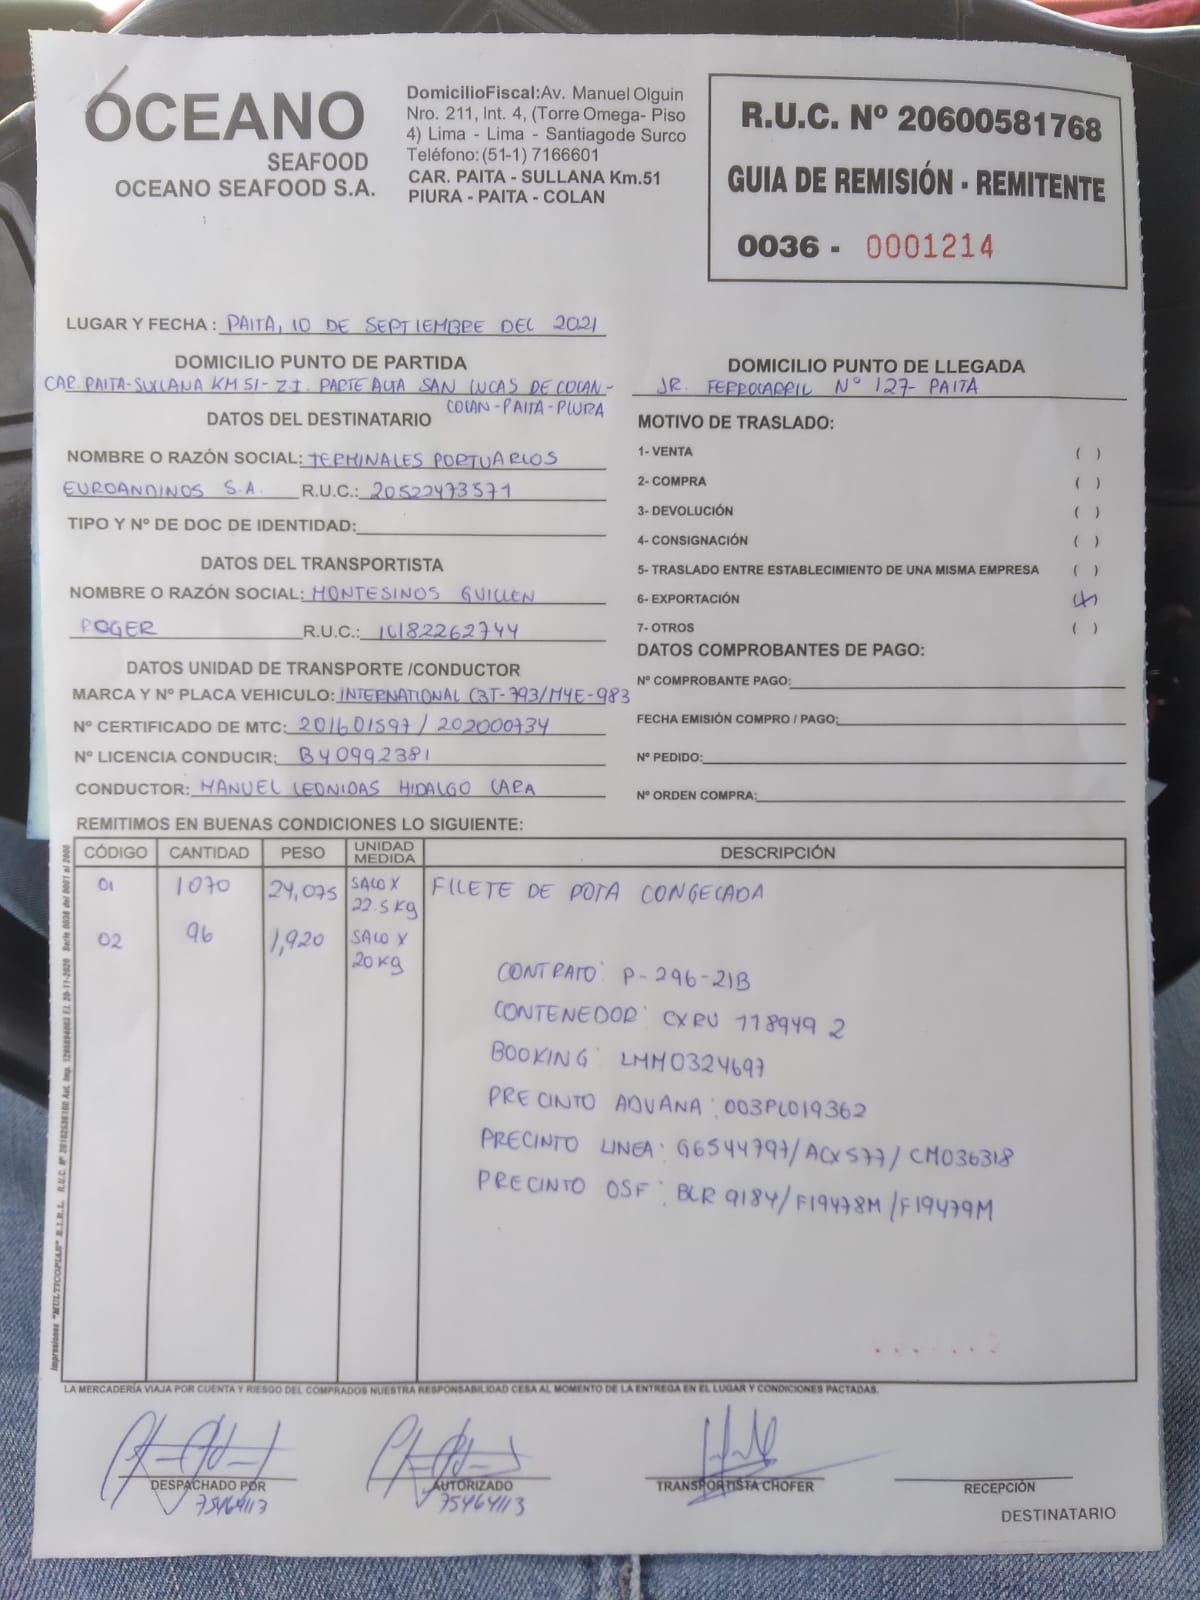 OCEANO
SEAFOOD
OCEANO SEAFOOD S.A.
DomicilioFiscal:Av. Manuel Olguin
Nro. 211, Int. 4, (Torre Omega- Piso
4) Lima - Lima - Santiagode Surco
Teléfono: (51-1) 7166601
CAR. PAITA - SULLANA Km.51
PIURA - PAITA - COLAN
R.U.C. Nº 20600581768
GUIA DE REMISIÓN - REMITENTE
0036 - 0001214
LUGAR Y FECHA : PAITA, 10 DE SEPTIEMBRE DEL 2021
DOMICILIO PUNTO DE PARTIDA
CAR. PAITA-SULLANA KM 51- Z.I. PARTE ALTA SAN LUCAS DE COLAN-
COLAN-PAITA-PIURA
DOMICILIO PUNTO DE LLEGADA
JR. FERROCARRIL Nº 127- PAITA
DATOS DEL DESTINATARIO
NOMBRE O RAZÓN SOCIAL: TERMINALES PORTUARIOS
EUROANDINOS S.A. R.U.C.: 20522473571
TIPO Y Nº DE DOC DE IDENTIDAD:
DATOS DEL TRANSPORTISTA
NOMBRE O RAZÓN SOCIAL: MONTESINOS GUILLEN
ROGER R.U.C.: 10182262744
DATOS UNIDAD DE TRANSPORTE /CONDUCTOR
MARCA Y Nº PLACA VEHICULO: INTERNATIONAL C3T-793/M4E-983
Nº CERTIFICADO DE MTC: 201601597 / 202000734
Nº LICENCIA CONDUCIR: B40992381
CONDUCTOR: MANUEL LEONIDAS HIDALGO LARA
MOTIVO DE TRASLADO:
1- VENTA ( )
2- COMPRA ( )
3- DEVOLUCIÓN ( )
4- CONSIGNACIÓN ( )
5- TRASLADO ENTRE ESTABLECIMIENTO DE UNA MISMA EMPRESA ( )
6- EXPORTACIÓN (X)
7- OTROS ( )
DATOS COMPROBANTES DE PAGO:
Nº COMPROBANTE PAGO:
FECHA EMISIÓN COMPRO / PAGO:
Nº PEDIDO:
Nº ORDEN COMPRA:
REMITIMOS EN BUENAS CONDICIONES LO SIGUIENTE:
CÓDIGO CANTIDAD PESO UNIDAD MEDIDA DESCRIPCIÓN
01 1070 24,075 SACO X 22.5 Kg FILETE DE POTA CONGELADA
02 96 1,920 SACO X 20 Kg
CONTRATO: P-296-21B
CONTENEDOR: CXRU 118949 2
BOOKING: LMM0324697
PRECINTO ADUANA: 003PL019362
PRECINTO LINEA: G6544797/ACX577/CM036318
PRECINTO OSF: BLR 9184/F19478M/F19479M
Impresiones "MULTICOPIAS" E.I.R.L.
LA MERCADERÍA VIAJA POR CUENTA Y RIESGO DEL COMPRADOS NUESTRA RESPONSABILIDAD CESA AL MOMENTO DE LA ENTREGA EN EL LUGAR Y CONDICIONES PACTADAS.
DESPACHADO POR
75464113
AUTORIZADO
75464113
TRANSPORTISTA CHOFER
RECEPCIÓN
DESTINATARIO